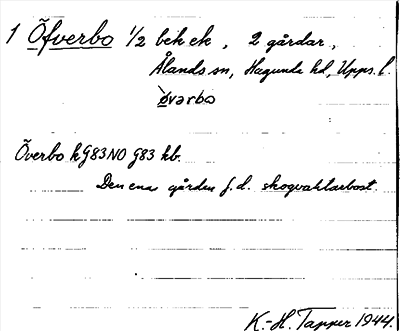 1 Öfverbo 1/2 bek ek, 2 gårdar,
Ålands sn, Hagunda hd, Upps. l.
øvarbo
Överbo kG83NO G83 kb.
Den ena gården f.d. skogvaktarbost.
K.-H. Tapper 1944.